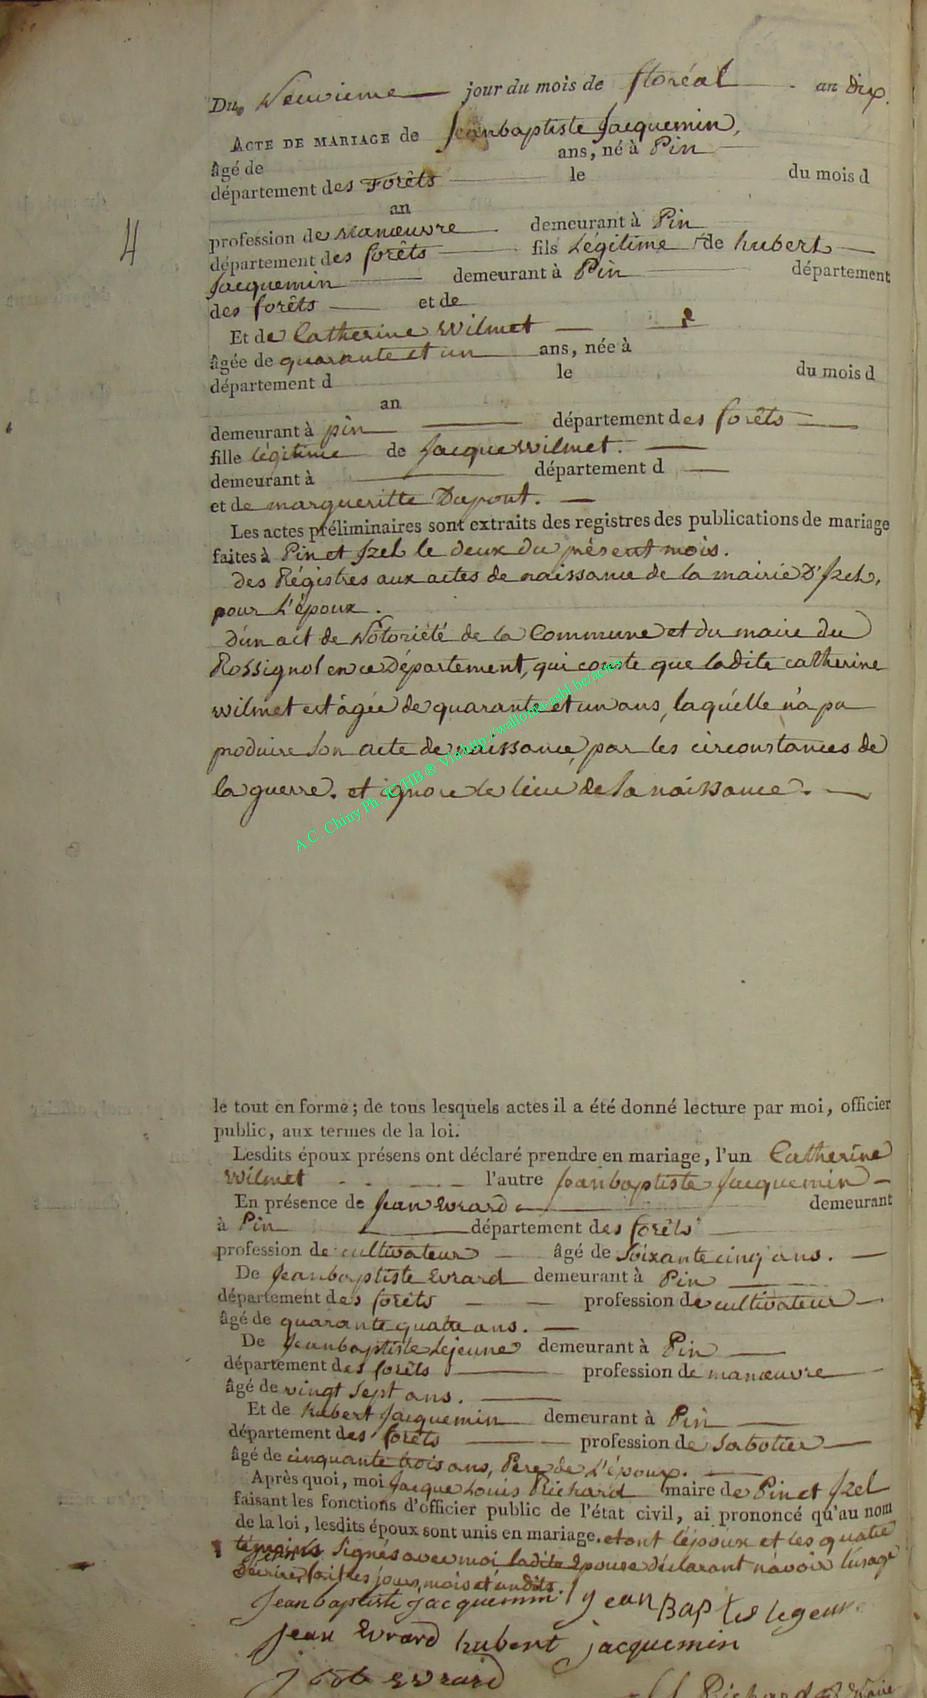 Du Neuvieme jour du mois de floréal an dix.
ACTE DE MARIAGE de Jeanbaptiste Jacquemin,
âgé de ans, né à Pin
département des Forêts le du mois d
an
profession de Manœuvre demeurant à Pin
département des forêts fils Légitime de hubert
Jacquemin demeurant à Pin département
des forêts et de
Et de Catherine Wilmet
âgée de quarante et un ans, née à
département d le du mois d
an
demeurant à pin département des forêts
fille légitime de Jacque Wilmet.
demeurant à département d
et de margueritte Dupont.
Les actes préliminaires sont extraits des registres des publications de mariage
faites à Pin et Izel le deux du présent mois.
Des Régistres aux actes de naissance de la mairie D'Izel,
pour L'époux.
D'un act de Notoriété de la Commune et du maire du
Rossignol en ce Département, qui conste que ladite catherine
wilmet est âgée de quarante et un ans, laquélle n'a pu
produire son acte de naissance, par les circonstances de
la guerre. et ignore le lieu de sa naissance.
A.C. Chiny Ph. http://wallonia
4
le tout en forme; de tous lesquels actes il a été donné lecture par moi, officier
public, aux termes de la loi.
Lesdits époux présens ont déclaré prendre en mariage, l'un Catherine
Wilmet l'autre Jeanbaptiste Jacquemin
En présence de Jean Evrard demeurant
à Pin département des forêts
profession de cultivateur âgé de Soixante cinq ans.
De Jeanbaptiste Evrard demeurant à Pin
département des forêts profession de cultivateur
âgé de quarante quatre ans.
De Jeanbaptiste Lejeune demeurant à Pin
département des forêts profession de manœuvre
âgé de vingt sept ans.
Et de hubert Jacquemin demeurant à Pin
département des forêts profession de Sabotier
âgé de cinquante trois ans, Pere de L'époux.
Après quoi, moi Jacque Louis Richard maire de Pin et Izel
faisant les fonctions d'officier public de l'état civil, ai prononcé qu'au nom
de la loi, lesdits époux sont unis en mariage. et ont l'époux et les quatre
témoins Signés avec moi ladite Epouse déclarant n'avoir l'usage
d'écrire, fait les jours, mois et an dits.
Jeanbaptiste jacquemin jean Baptis legeune
jean Evrard hubert jacquemin
evrard
Richard maire